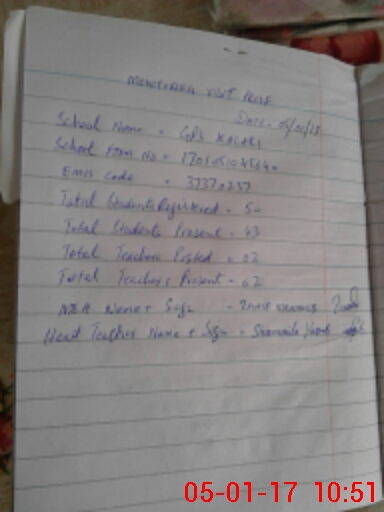 MONITORING VISIT PROOF
Date: 05/01/17
School Name = GPS KALARI
School Form No =
EMIS Code = 37370237
Total Students Registered = 50
Total Students Present = 43
Total Teachers Posted = 02
Total Teachers Present = 02
MEA Name + Sign -
Head Teacher Name + Sign -
05-01-17 10:51